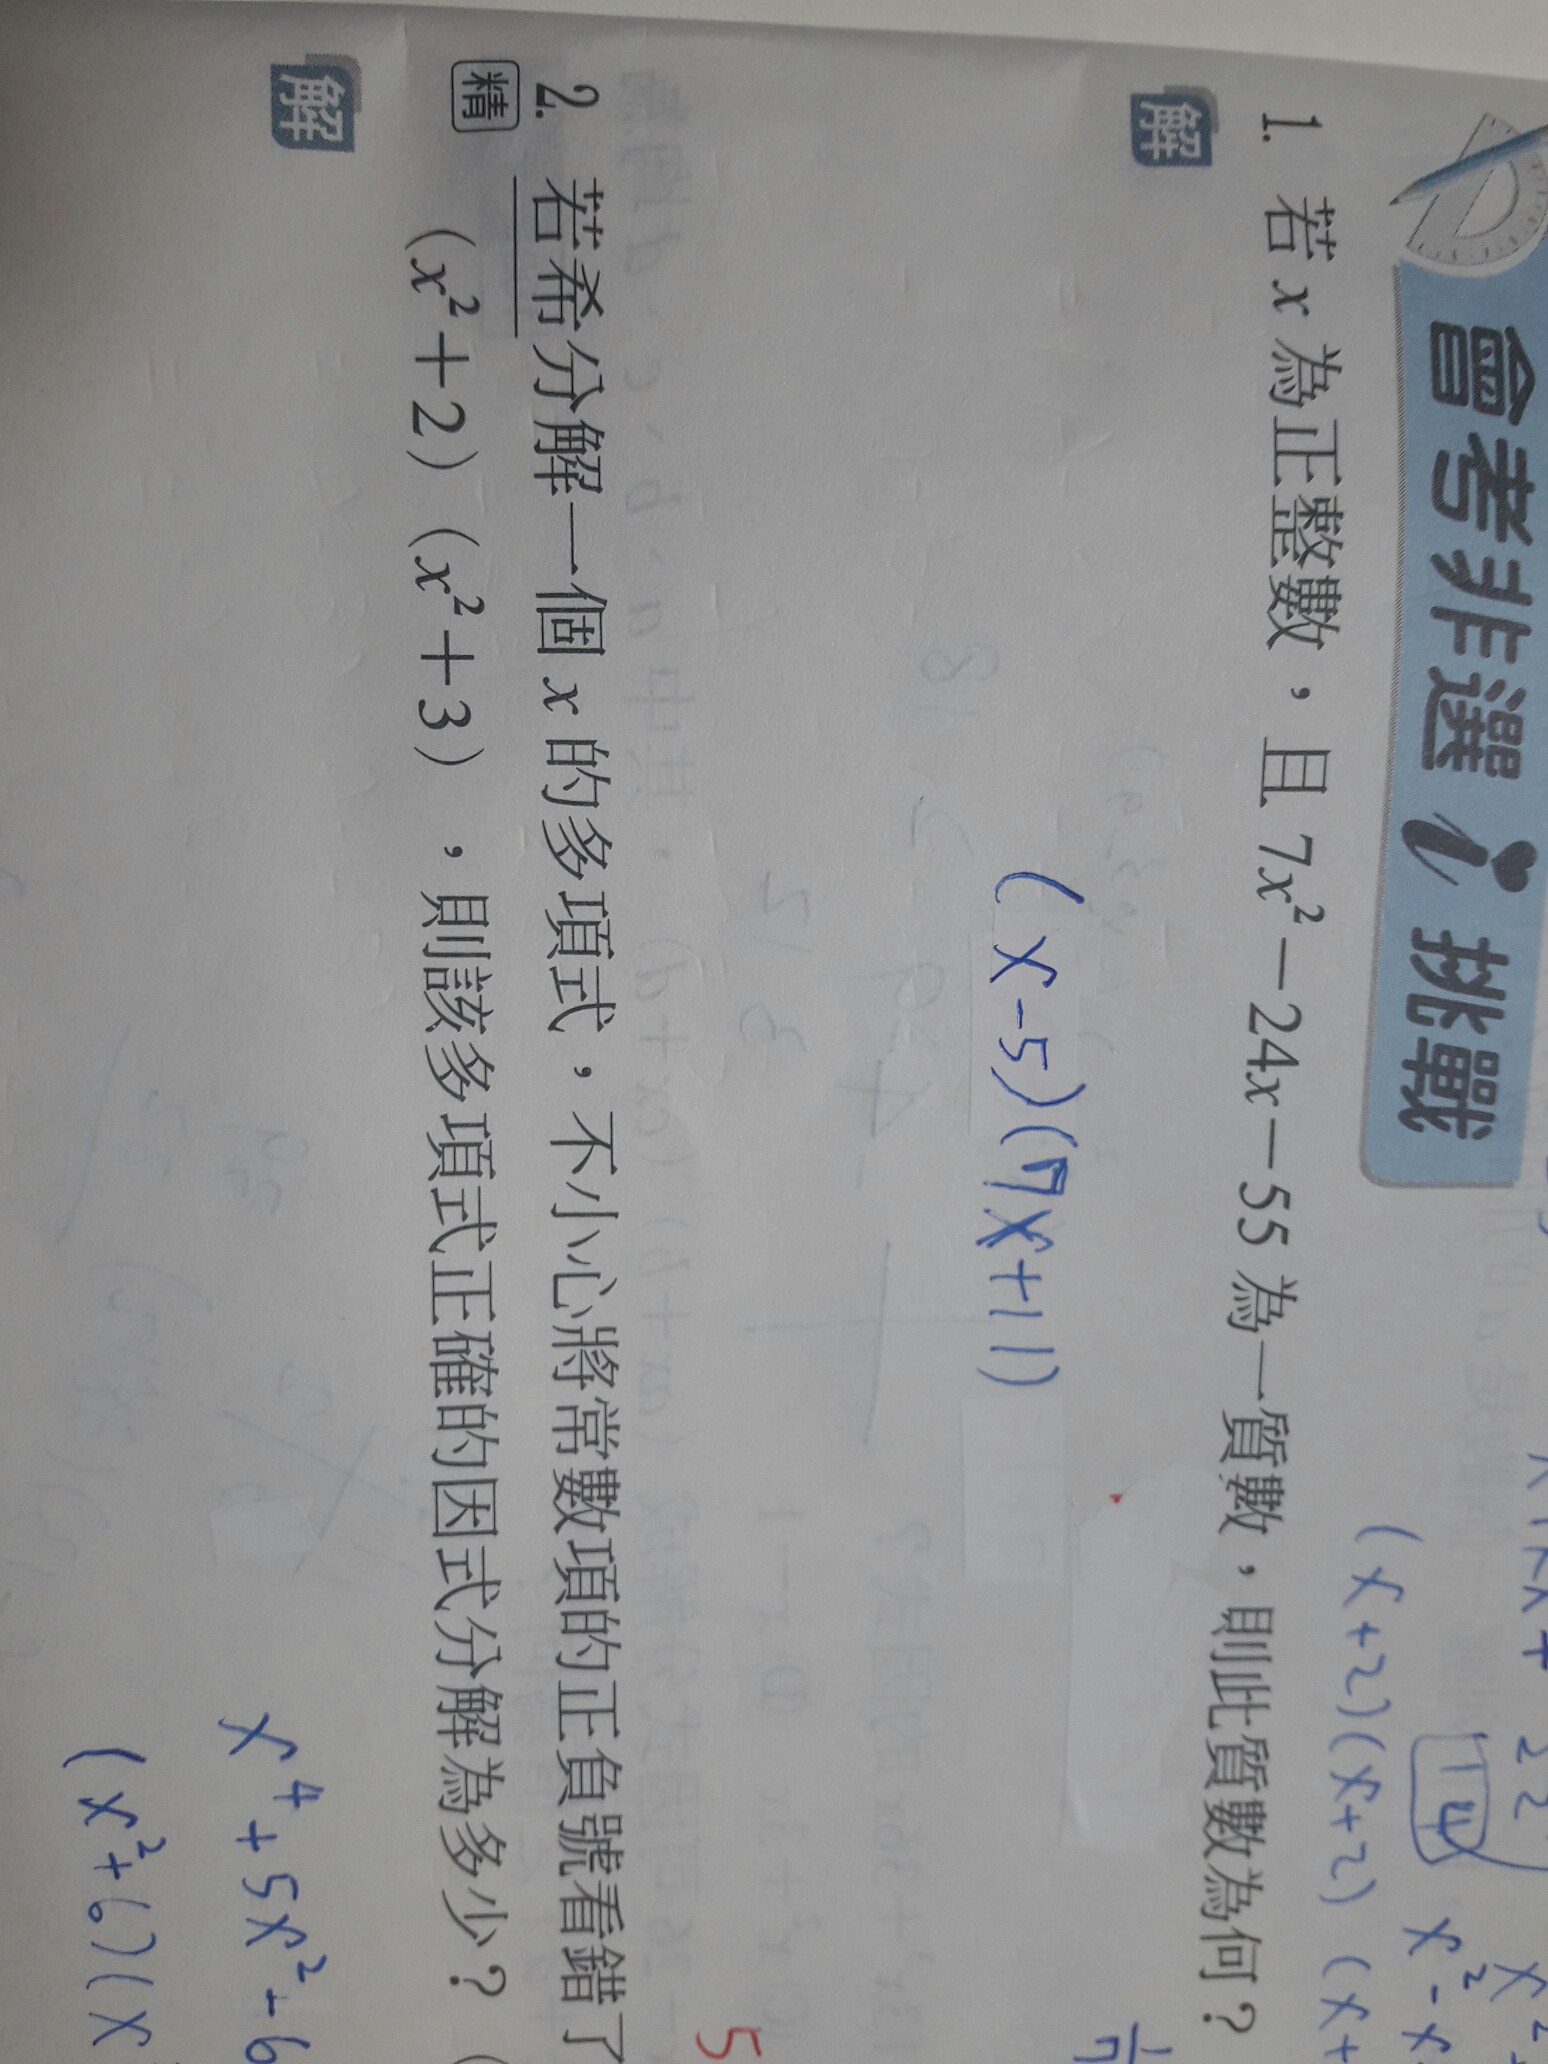 會考非選 i 挑戰
x²-
22
14
x²-x
(x+2)(x+2)(x+
1. 若 x 為正整數，且 7x²－24x－55 為一質數，則此質數為何？
解
(x-5)(7x+11)
5
2. 若希分解一個 x 的多項式，不小心將常數項的正負號看錯了
精 (x²＋2)(x²＋3)，則該多項式正確的因式分解為多少？（
解
x⁴+5x²-6
(x²+6)(x